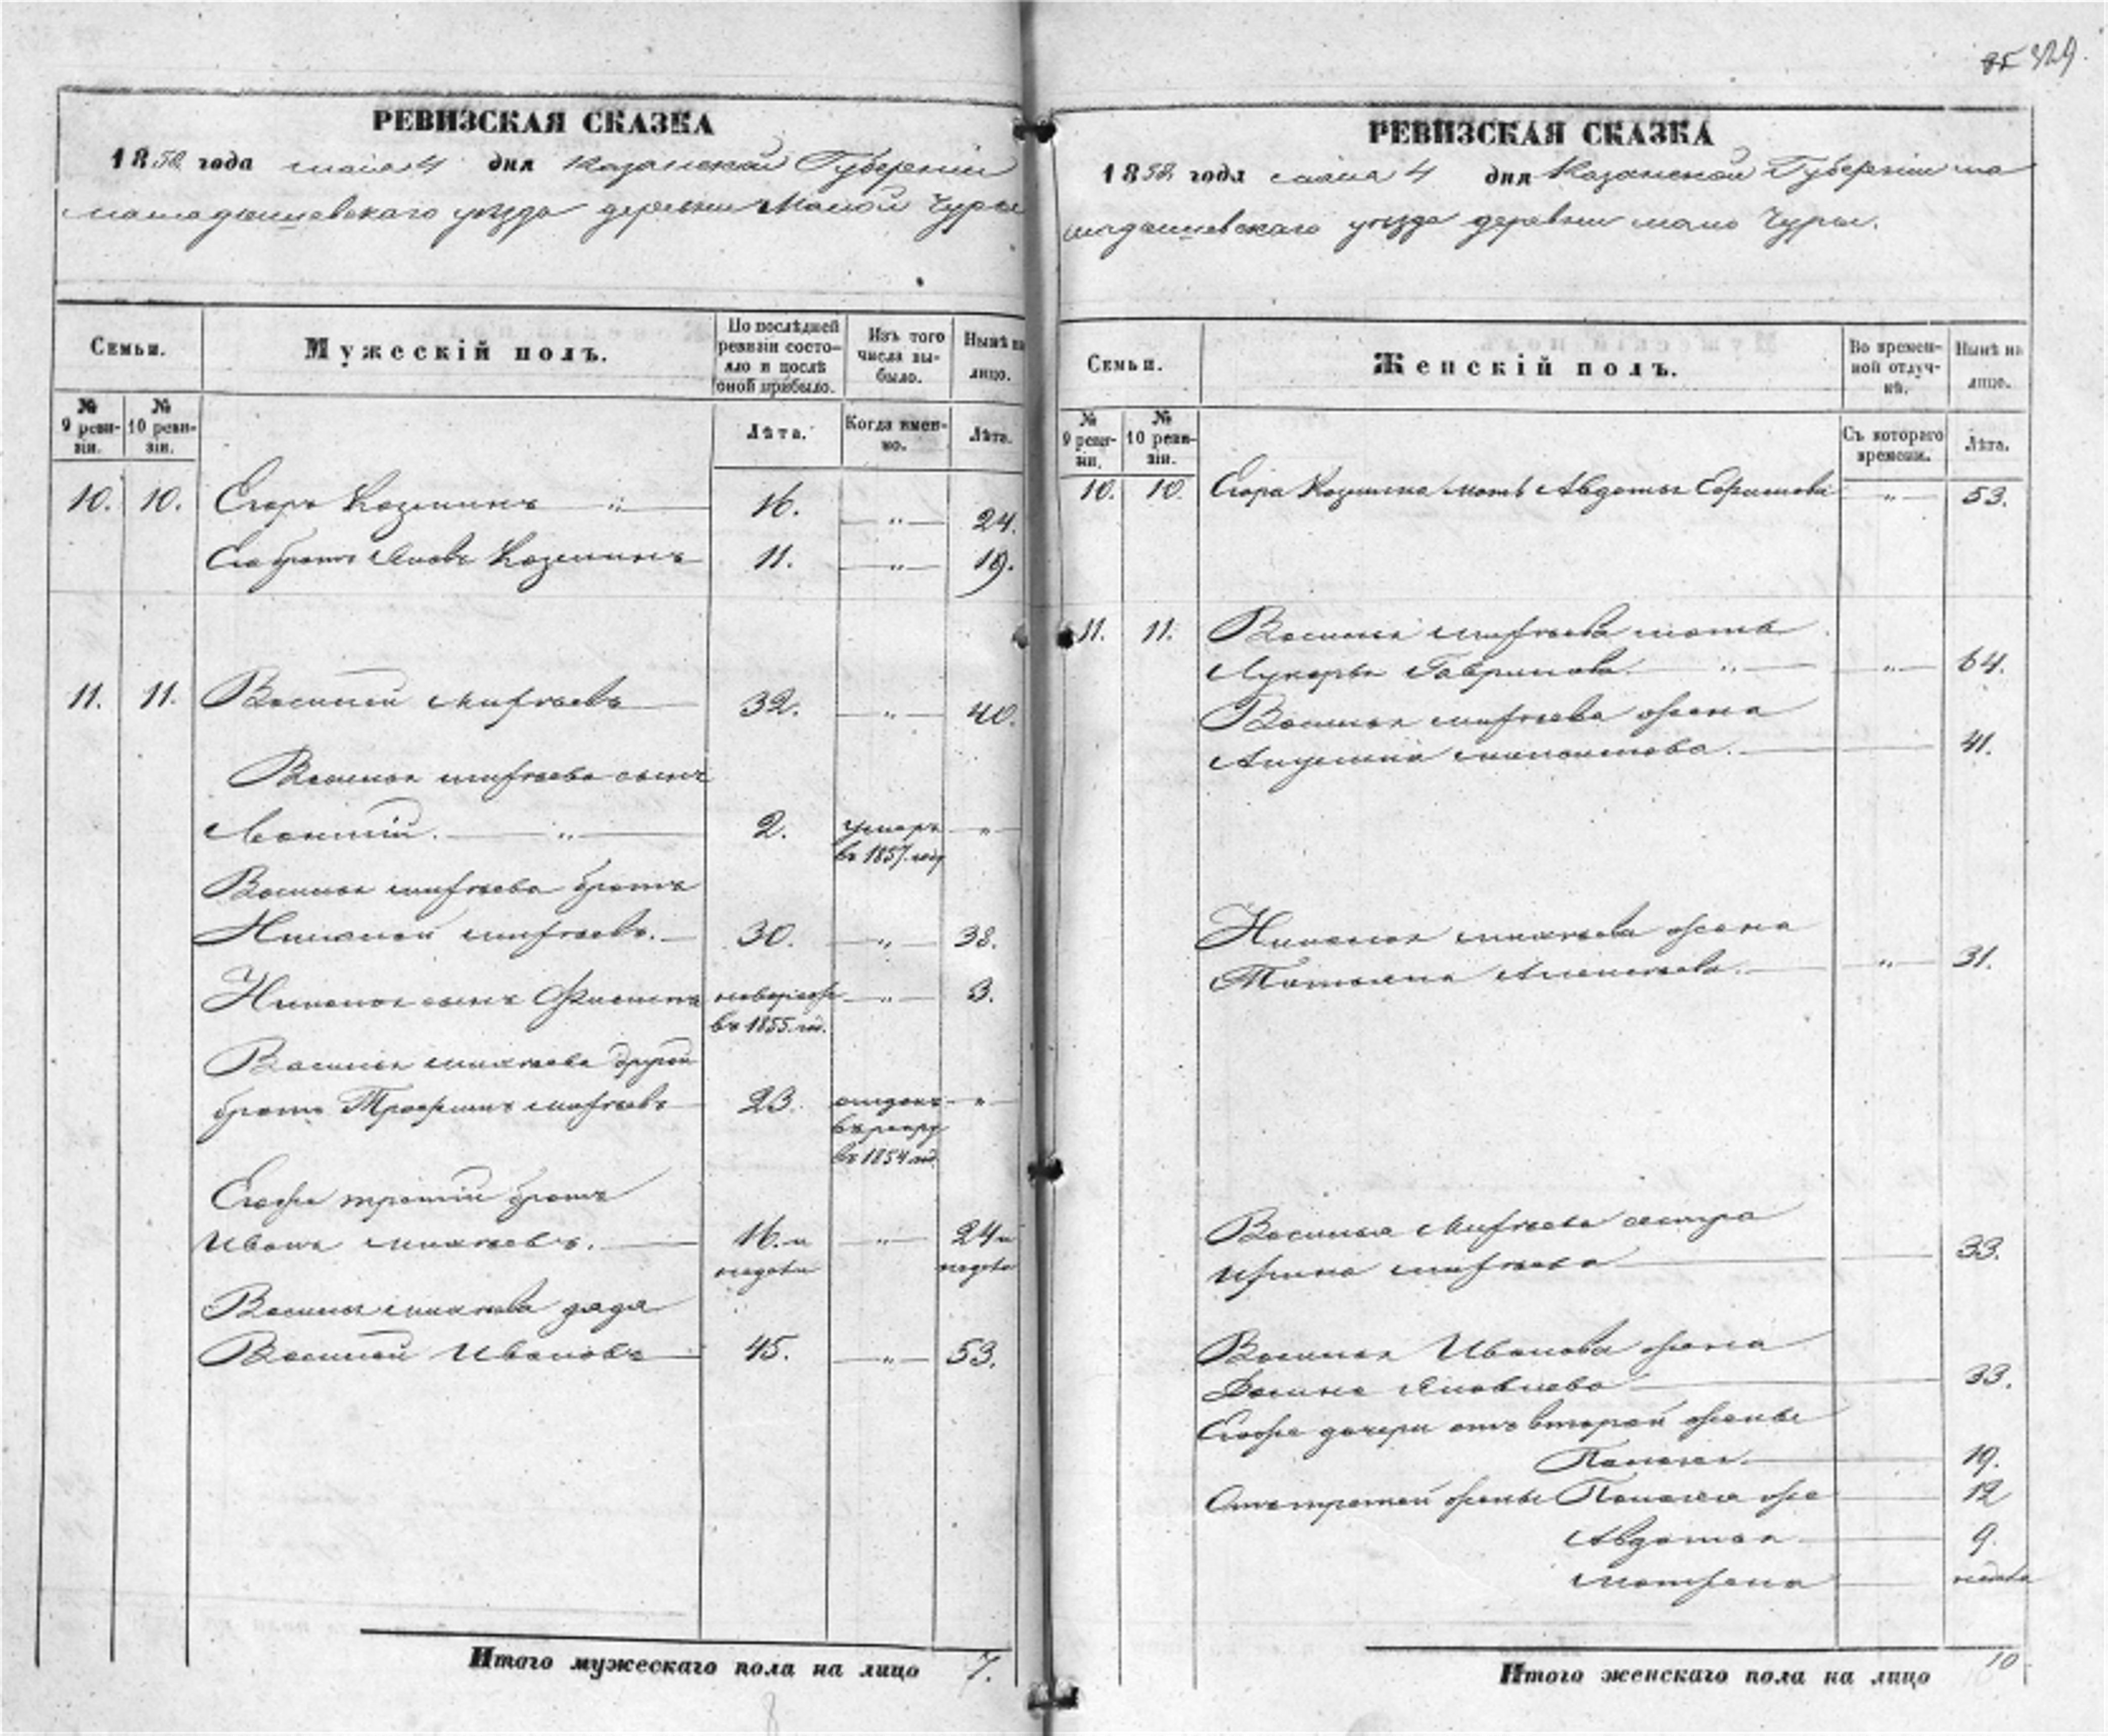 329.
РЕВИЗСКАЯ СКАЗКА
1858 года мая 4 дня Казанской Губернии
мамадышевскаго уезда деревни Малой Чуры
Семьи.
Мужескій полъ.
По послѣдней ревизіи состояло и послѣ оной прибыло.
Изъ того числа выбыло.
Нынѣ на лицо.
№ 9 ревизіи.
№ 10 ревизіи.
Лѣта.
Когда именно.
Лѣта.
10. 10. Егоръ Козминъ 16. „ 24.
Его братъ Яковъ Козминъ 11. „ 19.
11. 11. Василий Михѣевъ 32. „ 40.
Василья михѣева сынъ
2. умеръ „
въ 1857. году
Василья михѣева братъ
Николай михѣевъ. 30. „ 38.
Николая сынъ Филиппъ новорож „ 3.
въ 1855. год.
Василья михѣева другой
братъ Трофимъ михѣевъ 23. отданъ „
в рекру
въ 1854 год.
Егоже третий братъ
Иванъ михѣевъ. 16. и „ 24 и
недѣли недѣли
Василья михѣева дядя
Василий Ивановъ 45. „ 53.
Итого мужескаго пола на лицо 7.
РЕВИЗСКАЯ СКАЗКА
1858 года мая 4 дня Казанской Губернии ма
мадышевскаго уезда деревни мало Чуры.
Семьи.
Женскій полъ.
Во временной отлучкѣ.
Нынѣ на лицо.
№ 9 ревизіи.
№ 10 ревизіи.
Съ котораго времени.
Лѣта.
10. 10. Егора Козмина мать Авдотья Ефимова „ 53.
11. 11. Василья михѣева мать
Лукерья Гаврилова. „ „ 64.
Василья михѣева жена
Акулина 41.
Николая михѣева жена
Татьяна Алексѣева. „ 31.
Василья Михѣева сестра
Ирина михѣева 33.
Василья Иванова жена
Яковлева 33.
Егоже дочери отъ второй жены
Палагея. 19.
Отъ третей жены Палагея же 12
Авдотья 9.
матрена недѣли
Итого женскаго пола на лицо 10